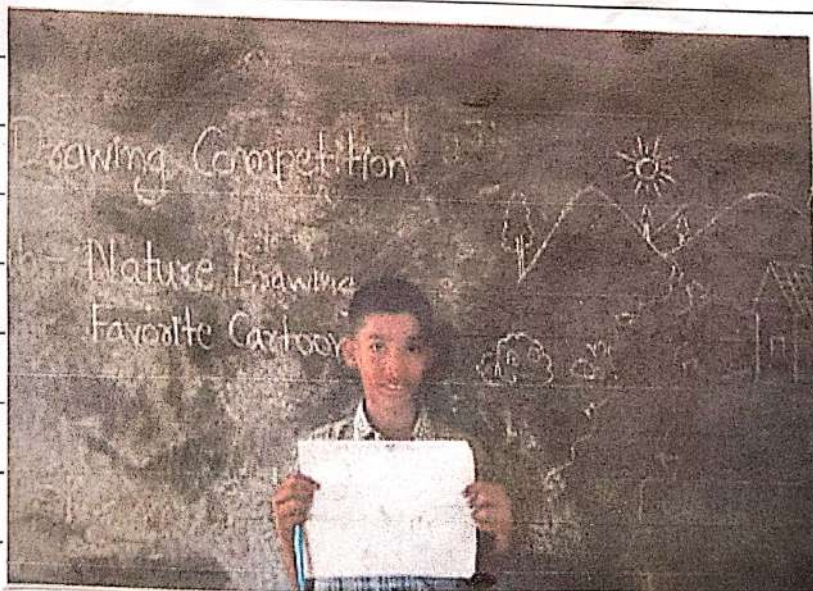 Drawing Competition
Nature Drawing
Favorite Cartoon